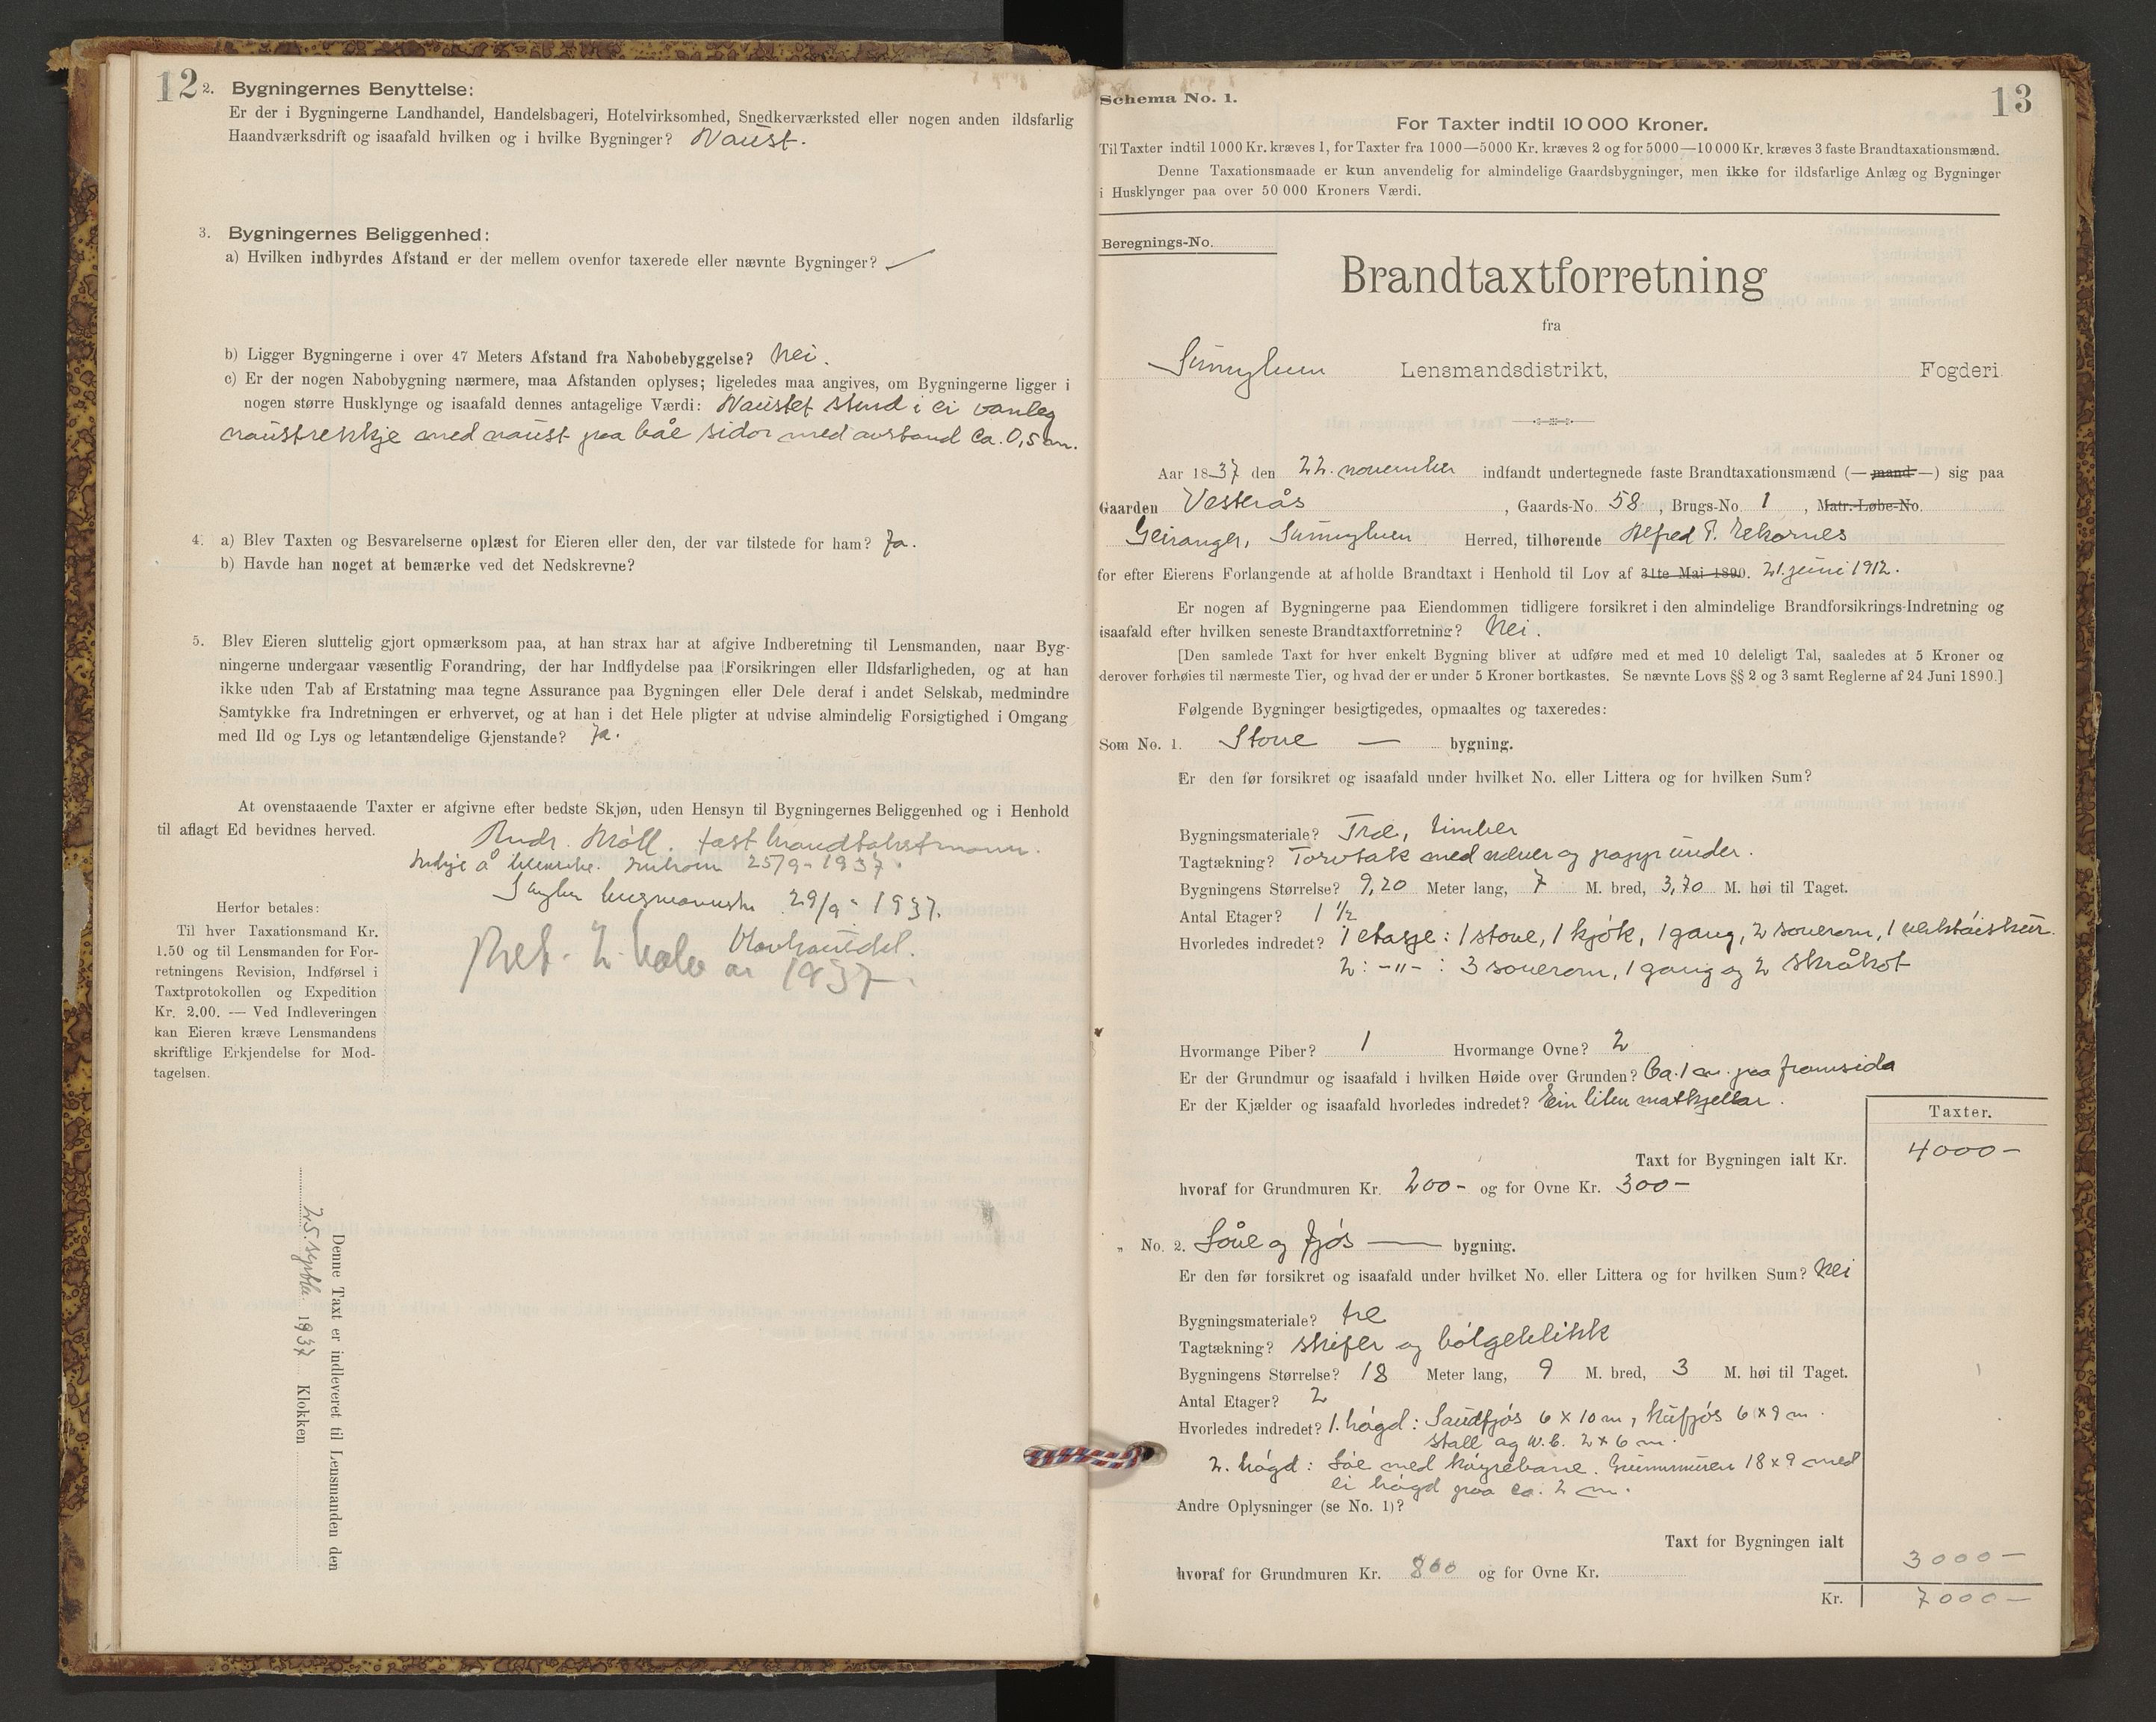 12
2. Bygningernes Benyttelse:
Er der i Bygningerne Landhandel, Handelsbageri, Hotelvirksomhed, Snedkerværksted eller nogen anden ildsfarlig
Haandværksdrift og isaafald hvilken og i hvilke Bygninger? Naust.
3. Bygningernes Beliggenhed:
a) Hvilken indbyrdes Afstand er der mellem ovenfor taxerede eller nævnte Bygninger?
b) Ligger Bygningerne i over 47 Meters Afstand fra Nabobebyggelse? Nei.
c) Er der nogen Nabobygning nærmere, maa Afstanden oplyses; ligeledes maa angives, om Bygningerne ligger i
nogen større Husklynge og isaafald dennes antagelige Værdi: Naustet stend i ei vanleg
naustrekkje med naust paa båe sidor med avstand ca. 0,5 m.
4. a) Blev Taxten og Besvarelserne oplæst for Eieren eller den, der var tilstede for ham? Ja.
b) Havde han noget at bemærke ved det Nedskrevne?
5. Blev Eieren sluttelig gjort opmærksom paa, at han strax har at afgive Indberetning til Lensmanden, naar Byg-
ningerne undergaar væsentlig Forandring, der har Indflydelse paa Forsikringen eller Ildsfarligheden, og at han
ikke uden Tab af Erstatning maa tegne Assurance paa Bygningen eller Dele deraf i andet Selskab, medmindre
Samtykke fra Indretningen er erhvervet, og at han i det Hele pligter at udvise almindelig Forsigtighed i Omgang
med Ild og Lys og letantændelige Gjenstande? Ja.
At ovenstaaende Taxter er afgivne efter bedste Skjøn, uden Hensyn til Bygningernes Beliggenhed og i Henhold
til aflagt Ed bevidnes herved.
Andr. Møll. fast brandtakstmann.
25/9-1937.
29/9-1937.
1937
Herfor betales:
Til hver Taxationsmand Kr.
1.50 og til Lensmanden for For-
retningens Revision, Indførsel i
Taxtprotokollen og Expedition
Kr. 2.00. — Ved Indleveringen
kan Eieren kræve Lensmandens
skriftlige Erkjendelse for Mod-
tagelsen.
Denne Taxt er indleveret til Lensmanden den
25. septbr. 1937 Klokken
13
Schema No. 1.
For Taxter indtil 10 000 Kroner.
Til Taxter indtil 1000 Kr. kræves 1, for Taxter fra 1000—5000 Kr. kræves 2 og for 5000—10 000 Kr. kræves 3 faste Brandtaxationsmænd.
Denne Taxationsmaade er kun anvendelig for almindelige Gaardsbygninger, men ikke for ildsfarlige Anlæg og Bygninger
i Husklynger paa over 50 000 Kroners Værdi.
Beregnings-No.
Brandtaxtforretning
fra
Sunnylven Lensmandsdistrikt, Fogderi
Aar 1837 den 22. november indfandt undertegnede faste Brandtaxationsmænd (— mand —) sig paa
Gaarden Vesterås, Gaards-No. 58, Brugs-No. 1, Matr.-Løbe-No.
Geiranger, Sunnylven Herred, tilhørende Alfred P. Ekornes
for efter Eierens Forlangende at afholde Brandtaxt i Henhold til Lov af 31te Mai 1890. 21. juni 1912.
Er nogen af Bygningerne paa Eiendommen tidligere forsikret i den almindelige Brandforsikrings-Indretning og
isaafald efter hvilken seneste Brandtaxtforretning? Nei.
[Den samlede Taxt for hver enkelt Bygning bliver at udføre med et med 10 deleligt Tal, saaledes at 5 Kroner og
derover forhøies til nærmeste Tier, og hvad der er under 5 Kroner bortkastes. Se nævnte Lovs §§ 2 og 3 samt Reglerne af 24 Juni 1890.]
Følgende Bygninger besigtigedes, opmaaltes og taxeredes:
Som No. 1. Stove — bygning.
Er den før forsikret og isaafald under hvilket No. eller Littera og for hvilken Sum?
Bygningsmateriale? Tre, timber
Tagtækning? Torvtak med never og papp under.
Bygningens Størrelse? 9,20 Meter lang, 7 M. bred, 3,70 M. høi til Taget.
Antal Etager? 1 1/2
Hvorledes indredet? 1 etasje: 1 stove, 1 kjøk, 1 gang, 2 soverom, 1 vedskur.
2: -"- : 3 soverom, 1 gang og 2 skråkot
Hvormange Piber? 1 Hvormange Ovne? 2
Er der Grundmur og isaafald i hvilken Høide over Grunden? Ca. 1 m. paa framsida
Er der Kjælder og isaafald hvorledes indredet? Ein liten matkjellar.
Taxter.
Taxt for Bygningen ialt Kr. 4000-
hvoraf for Grundmuren Kr. 200- og for Ovne Kr. 300-
" No. 2. Løue og fjøs — bygning.
Er den før forsikret og isaafald under hvilket No. eller Littera og for hvilken Sum? Nei
Bygningsmateriale? tre
Tagtækning? skifer og bølgeblikk
Bygningens Størrelse? 18 Meter lang, 9 M. bred, 3 M. høi til Taget.
Antal Etager? 2
Hvorledes indredet? 1. høgd: Saudfjøs 6 x 10 m, kufjøs 6 x 9 m.
stall og w.c. 2 x 6 m.
2. høgd: Løe med køyrebane. Grunnmuren 18 x 9 med
ei høgd paa ca. 2 m.
Andre Oplysninger (se No. 1)?
Taxt for Bygningen ialt 3000-
hvoraf for Grundmuren Kr. 800 og for Ovne Kr.
Kr. 7000-